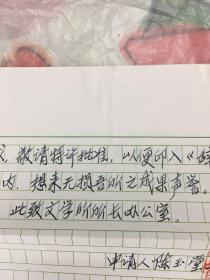 敬请特许批准，以便印入《
内，想来无损吾所之成果声誉。
此致文学所所长办公室。
申请人